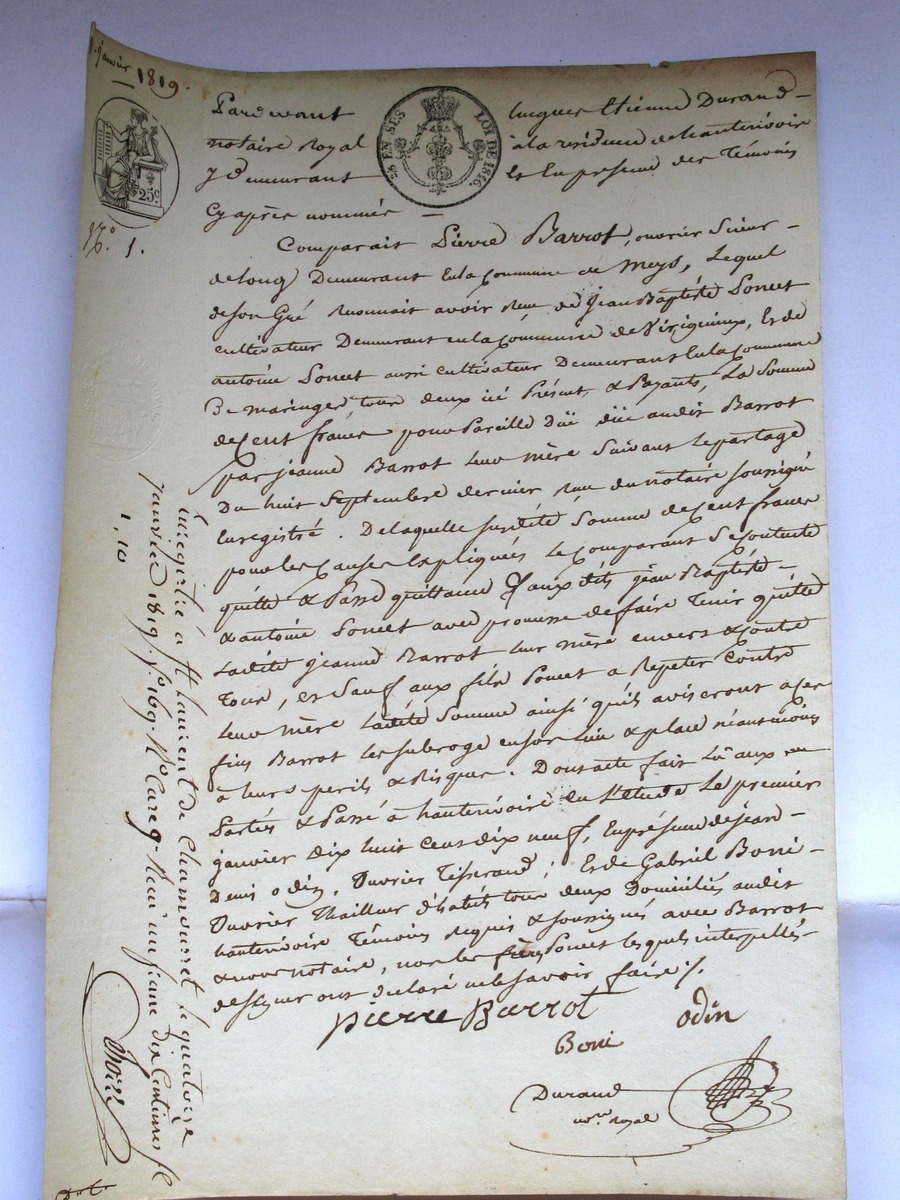 1. janvier 1819.
Pardevant hugues Etienne Durand
notaire Royal à la résidence de hauterivoire
y demeurant Et En presence des Témoins
Cy après nommés
25c
EN SUS
LOI DE 1816.
N.° 1.
Comparait Pierre Barrot, ouvrier Scieur
de long Demeurant En la Commune de Meys, Lequel
de son Gré Reconnait avoir Reçu de Jean Baptéste Poncet
cultivateur Demeurant en la Commune de Virigneux, Et de
antoine Poncet aussi cultivateur Demeurant En la Commune
De maringes tous deux icé Présents & Payants, La Somme
de Cent francs pour Pareille düe audit Barrot
par jeanne Barrot leur mère Suivant Le partage
Du huit Septembre dernier Reçu du notaire soussigné
Enregistré. De laquelle susdité Somme de Cent francs
pour les Causes Expliqués Le Comparant Se Contente
quitte & Passe quittance aux dits jean Baptéste
& antoine Poncet avec promesse de faire Tenir quitte
Ladite jeanne Barrot leur mère envers & contre
Tous, et Sauf aux fils Poncet a Repeter Contre
leur mère Ladité Somme ainsi qu'ils aviseront a Ces
fins Barrot les subroge en son Lieu & place néanmoins
à leurs perils & Risques. Dont acte fait Lû aux
Partés & Passé à hauterivoire En L'étude Le premier
janvier Dix huit Cens dix neuf, En présence de jean
Denis odin, Ouvrier Tisserand, Et de Gabriel Boni
Ouvrier Thailleur d'habits tous deux Domiciliés audit
hauterivoire Témoins Requis & soussignés avec Barrot
& nous notaire, non les frères Poncet lesquels interpellés
de signer ont déclaré ne le savoir faire ./.
pierre Barrot
odin
Boni
Durand
no.re royal
Enregistré à St Laurent de Chamousset le quatorze
janvier 1819. f.° 169. R.° Case 9. Reçu un franc dix Centimes
1, 10